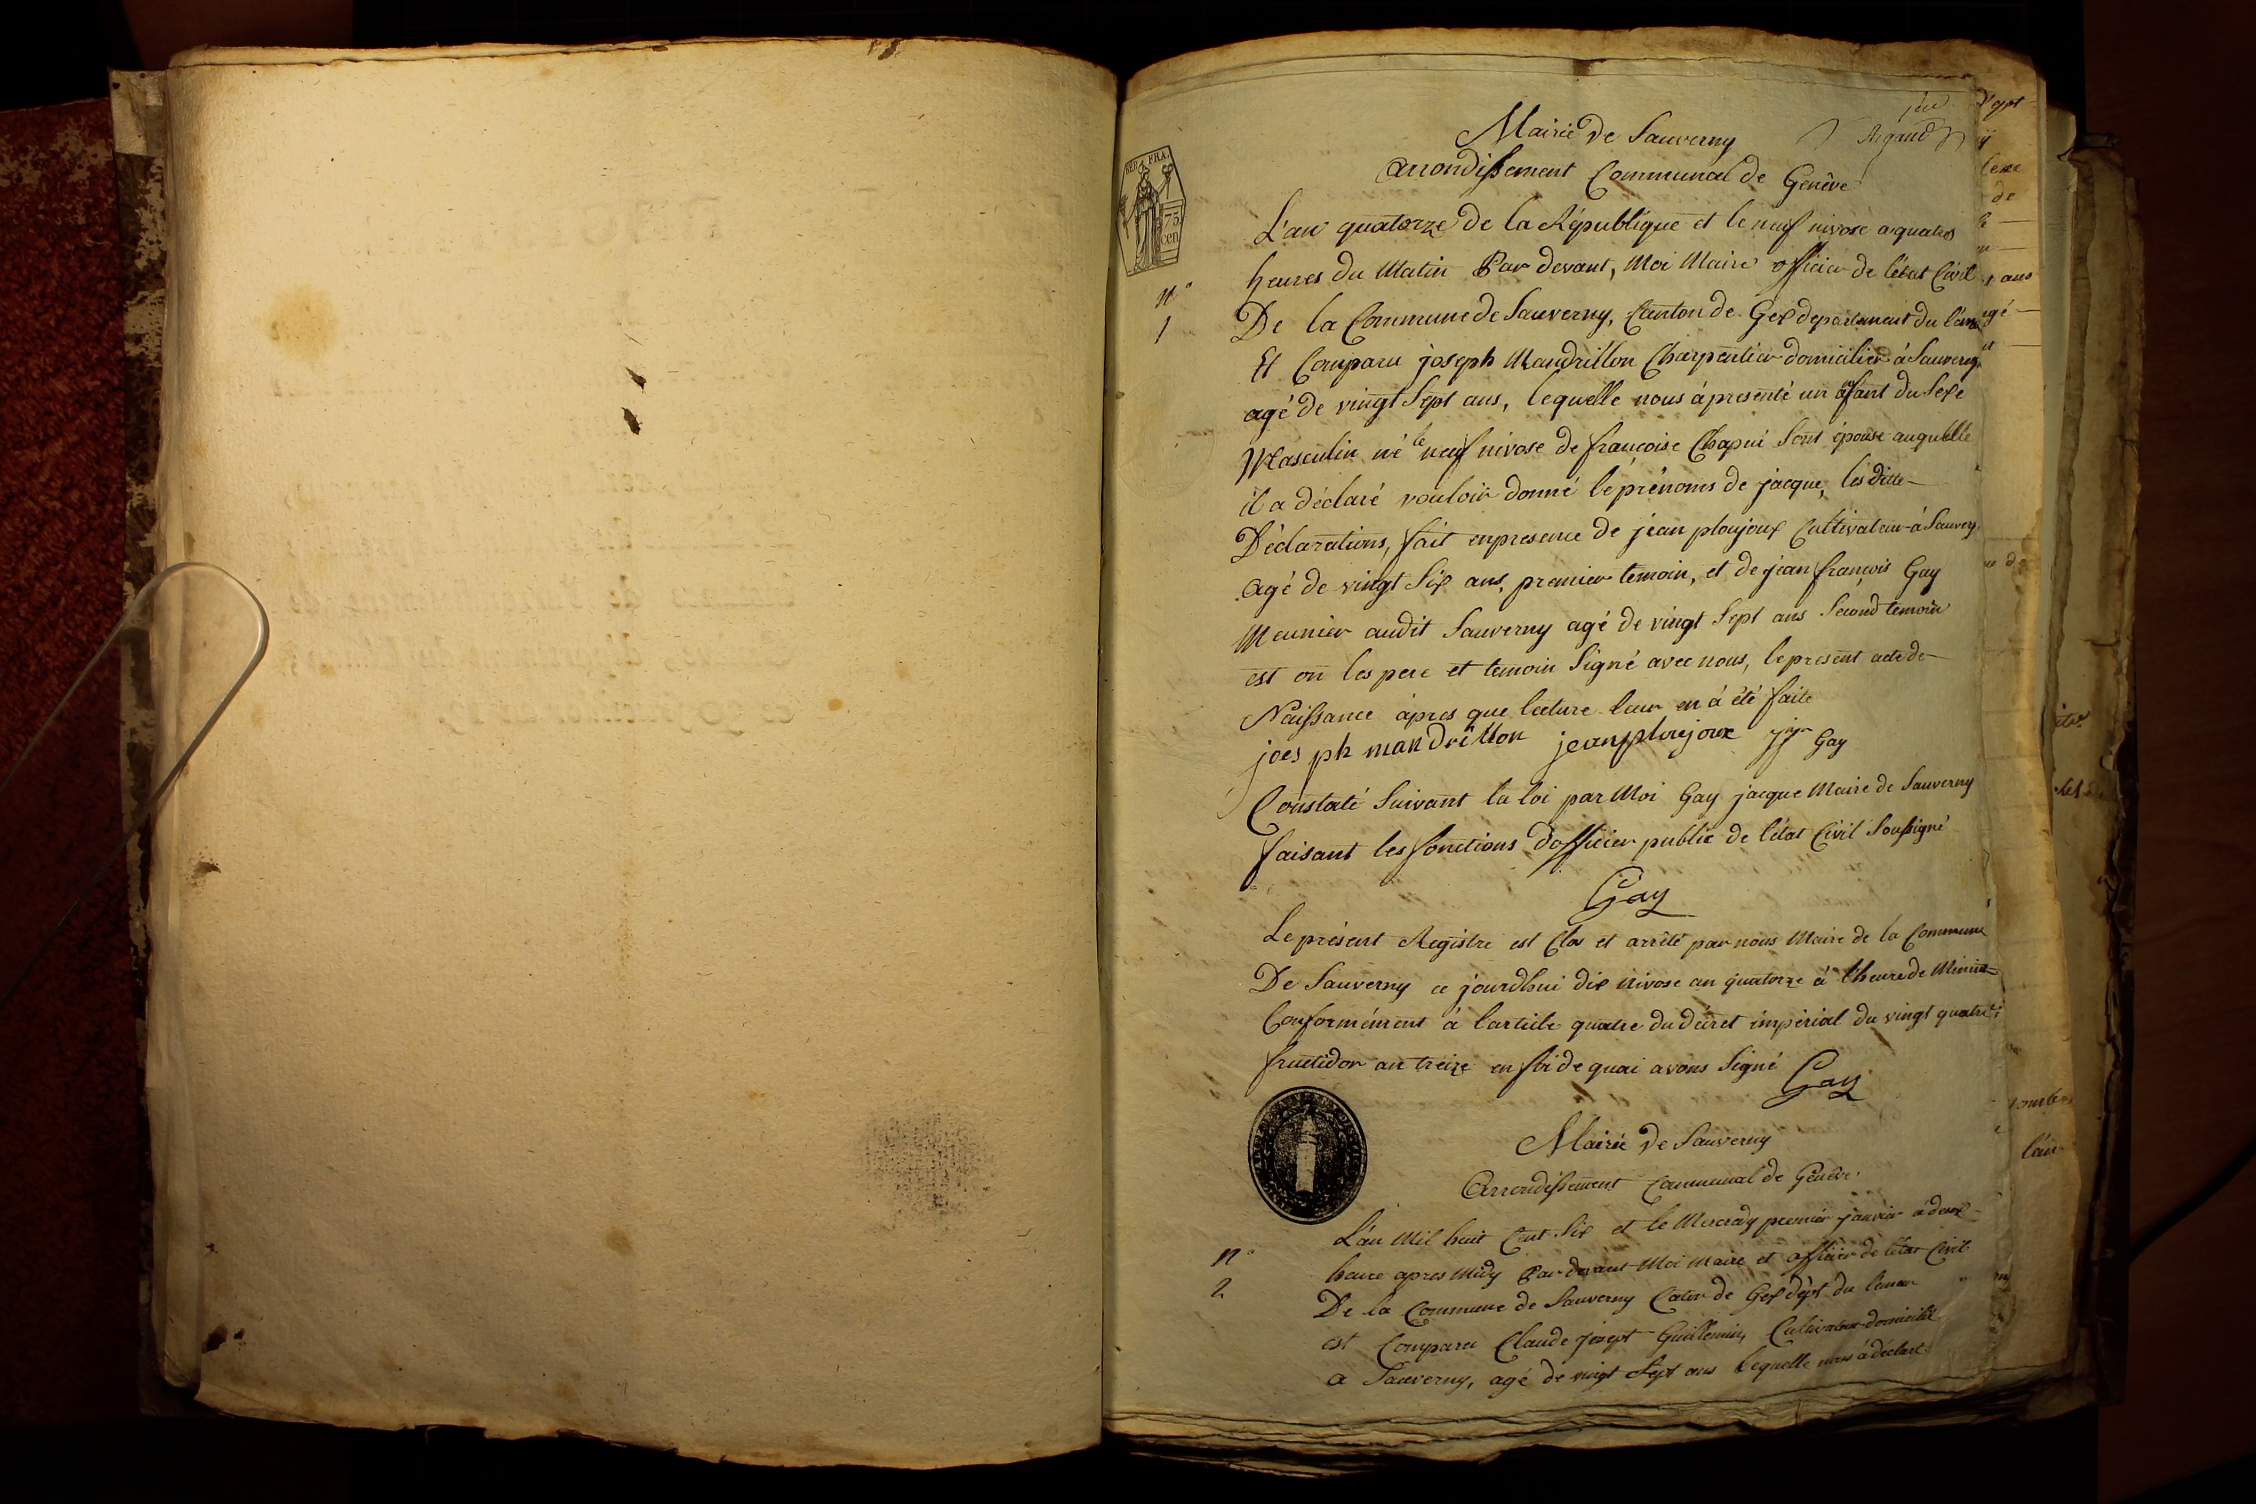 Mairie de Sauverny
Arrondissement Communal de Genève
REP. FRA.
75
cen
L'an quatorze de la République et le neuf nivose a quatres
heures du Matin Par devant, Moi Maire officier de létat Civil
N°
1
De la Commune de Sauverny, Canton de Gex departement du léman
Et Comparu joseph Mandrillon Charpentier domicilié à Sauverny
agé de vingt Sept ans, lequelle nous à presenté un enfant du Sexe
Masculin né le neuf nivose de françoise Chapui Sont épouse auquelle
il a déclaré vouloir donné le prénoms de jacque, les ditte
Déclarations, fait enpresence de jean ploujoux Cultivateur à Sauverny
agé de vingt Six ans, premier temoin, et de jean françois Gay
Meunier audit Sauverny agé de vingt Sept ans Second temoin
est on les pere et temoin Signé avec nous, le present acte de
Naissance àpres que lecture leur en à été faite
joes ph mandrillon jean ploujoux Gay
Constaté Suivant la loi par Moi Gay jacque Maire de Sauverny
faisant les fonctions dofficier public de létat Civil Soussigné
Gay
Le présent Registre est Clos et arrêté par nous Maire de la Commune
De Sauverny ce jourdhui dix nivose an quatorze à l'heure de Minuit
Conformément à larticle quatre du décret impérial du vingt quatre
fructidor an treize en foi de quoi avons Signé
Gay
Mairie de Sauverny
Arrondissement Communal de Genève
L'an Mil huit Cent Six et le Mercredy premier janvier a deux
N°
2
heure apres Midy Par devant Moi Maire et officier de létat Civil
De la Commune de Sauverny Caton de Gex dépt du leman
est Comparu Claude josept Guillemin, Cultivateur domicilié
a Sauverny, agé de vingt Sept ans lequelle nous à déclaré